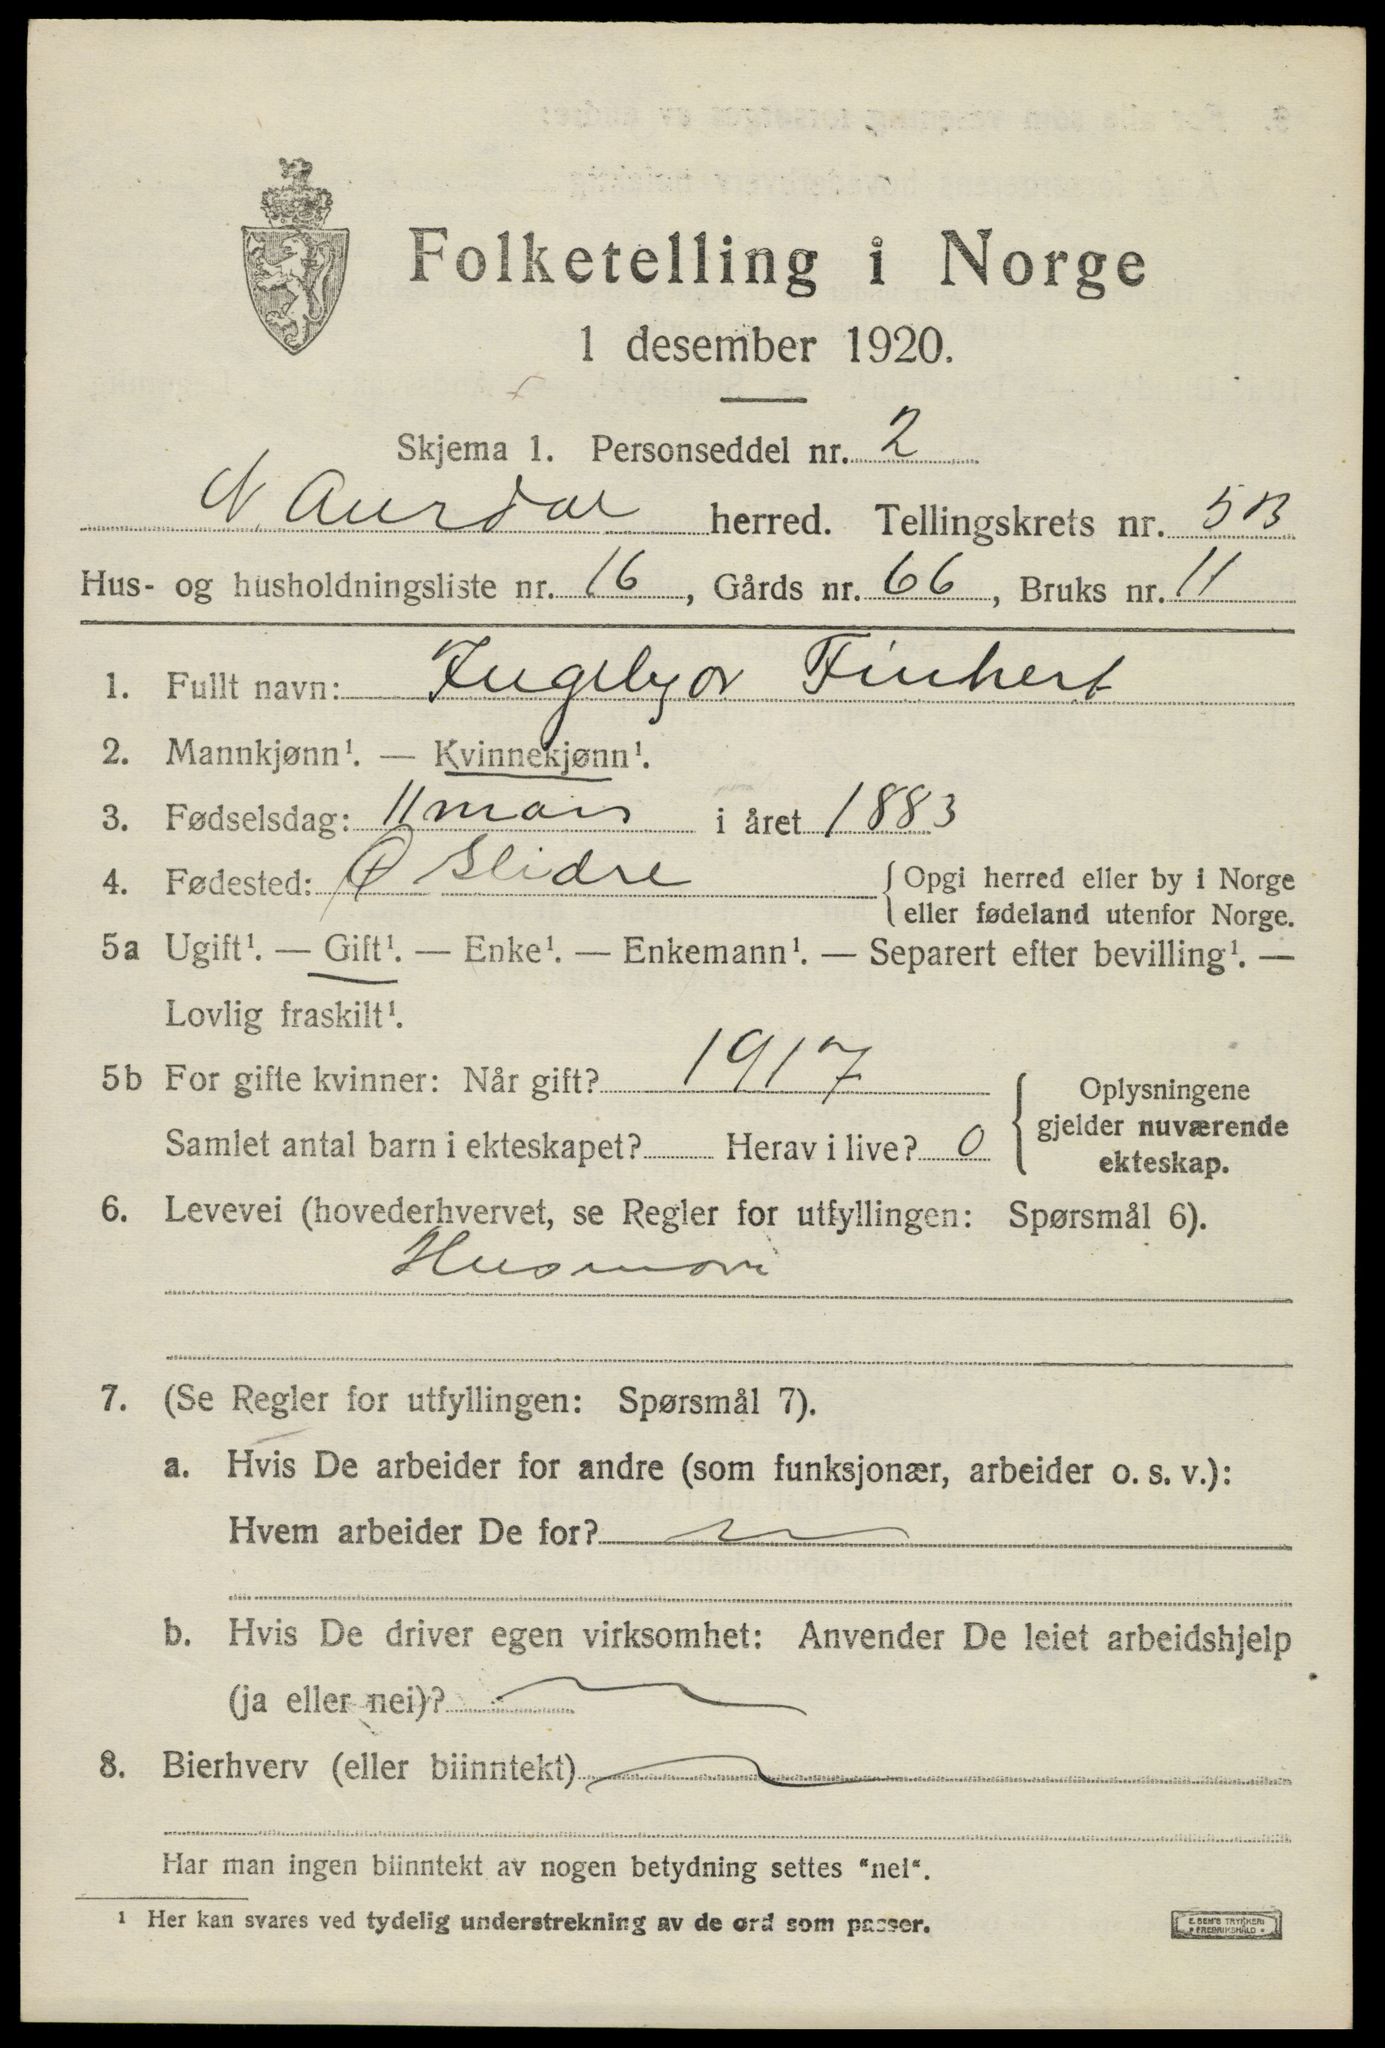 Folketelling i Norge
1 desember 1920.
Skjema 1. Personseddel nr. 2
N. Aurdal herred. Tellingskrets nr. 5B
Hus- og husholdningsliste nr. 16, Gårds nr. 66, Bruks nr. 11
1. Fullt navn: Ingebjør Finhert
2. Mannkjønn¹. — Kvinnekjønn¹.
3. Fødselsdag: 11 mars i året 1883
4. Fødested: Ø Slidre { Opgi herred eller by i Norge
eller fødeland utenfor Norge.
5a Ugift¹. — Gift¹. — Enke¹. — Enkemann¹. — Separert efter bevilling¹. —
Lovlig fraskilt¹.
5b For gifte kvinner: Når gift? 1917
Samlet antal barn i ekteskapet? Herav i live? 0
{ Oplysningene
gjelder nuværende
ekteskap.
6. Levevei (hovederhvervet, se Regler for utfyllingen: Spørsmål 6).
Husmor
7. (Se Regler for utfyllingen: Spørsmål 7).
a. Hvis De arbeider for andre (som funksjonær, arbeider o. s. v.):
Hvem arbeider De for?
b. Hvis De driver egen virksomhet: Anvender De leiet arbeidshjelp
(ja eller nei)?
8. Bierhverv (eller biinntekt)
Har man ingen biinntekt av nogen betydning settes "nei".
¹ Her kan svares ved tydelig understrekning av de ord som passer.
E. SEM'S TRYKKERI
• FREDRIKSHALD •